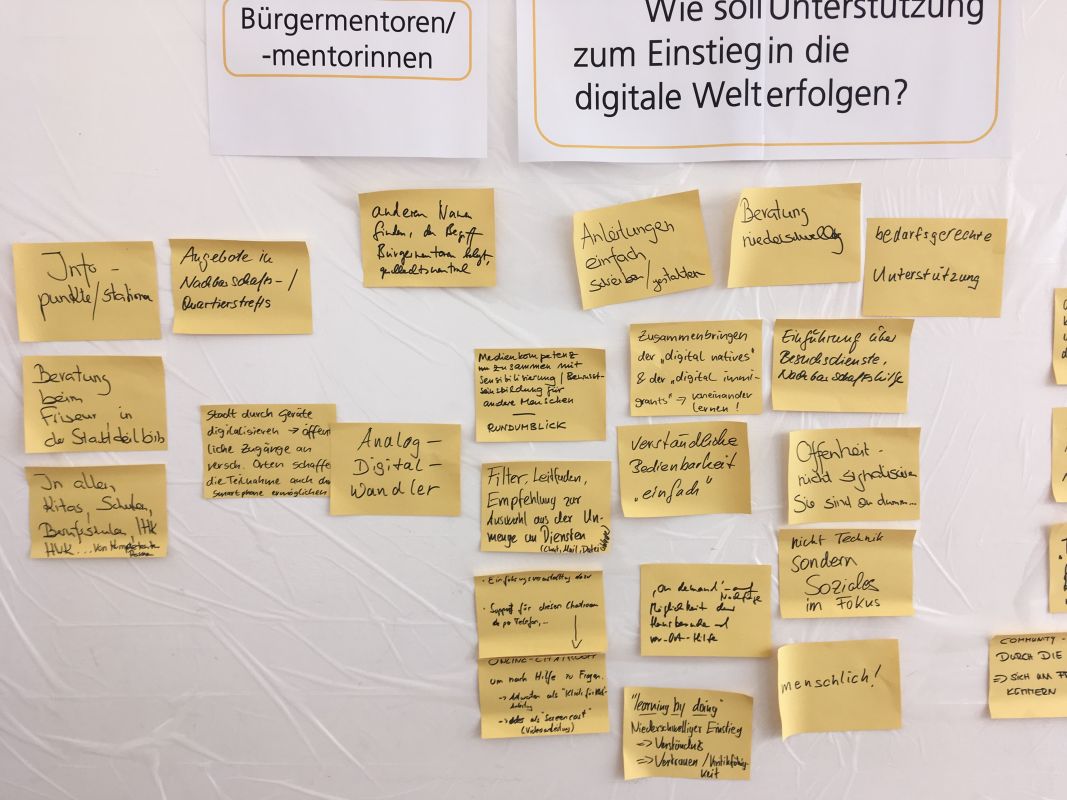 Bürgermentoren/
-mentorinnen
Wie soll Unterstützung
zum Einstieg in die
digitale Welt erfolgen?
anderen Namen
finden, da Begriff
Bürgermentoren belegt,
Anleitungen
einfach
schreiben/gestalten
Beratung
niederschwellig
bedarfsgerechte
Unterstützung
Info-
punkte/stationen
Angebote in
Nachbarschafts-/
Quartierstreffs
Beratung
beim
Friseur in
der Stadtteilbib
Stadt durch Geräte
digitalisieren → öffent
liche Zugänge an
versch. Orten schaffe
die Teilnahme auch
Smartphone ermöglichen
Analog-
Digital-
Wandler
In allen
Kitas, Schulen,
Berufsschulen, IHK
HWK... von
Medienkompetenz
zusammen mit
Sensibilisierung/Bewusst-
seinsbildung für
andere Menschen
RUNDUMBLICK
Filter, Leitfaden,
Empfehlung zur
Auswahl aus der Un-
menge an Diensten
(Chat, Mail, Datei
• Einführungsveranstaltung dazu
• Support für diesen Chatroom
per Telefon,...
ONLINE-CHATROOM
um nach Hilfe zu Fragen.
→ Antworten als
→ als "Screencast"
(Videoanleitung)
Zusammenbringen
der „digital natives"
& der „digital immi-
grants" → voneinander
lernen!
Einführung über
Besuchsdienste,
Nachbarschaftshilfe
Verständliche
Bedienbarkeit
„einfach"
Offenheit -
nicht signalisieren
Sie sind zu dumm...
nicht Technik
sondern
Soziales
im Fokus
„on demand" - auf
Nachfrage
Möglichkeit der
Hausbesuche
vor-Ort-Hilfe
menschlich!
"learning by doing"
Niederschwelliger Einstieg
⇒ Verständnis
⇒ Vertrauen /
keit
COMMUNITY-
DURCH DIE
⇒ SICH UM
KÜMMERN